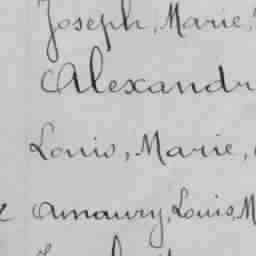 Joseph, Marie,
Alexandr
Louis, Marie,
Amaury, Louis M